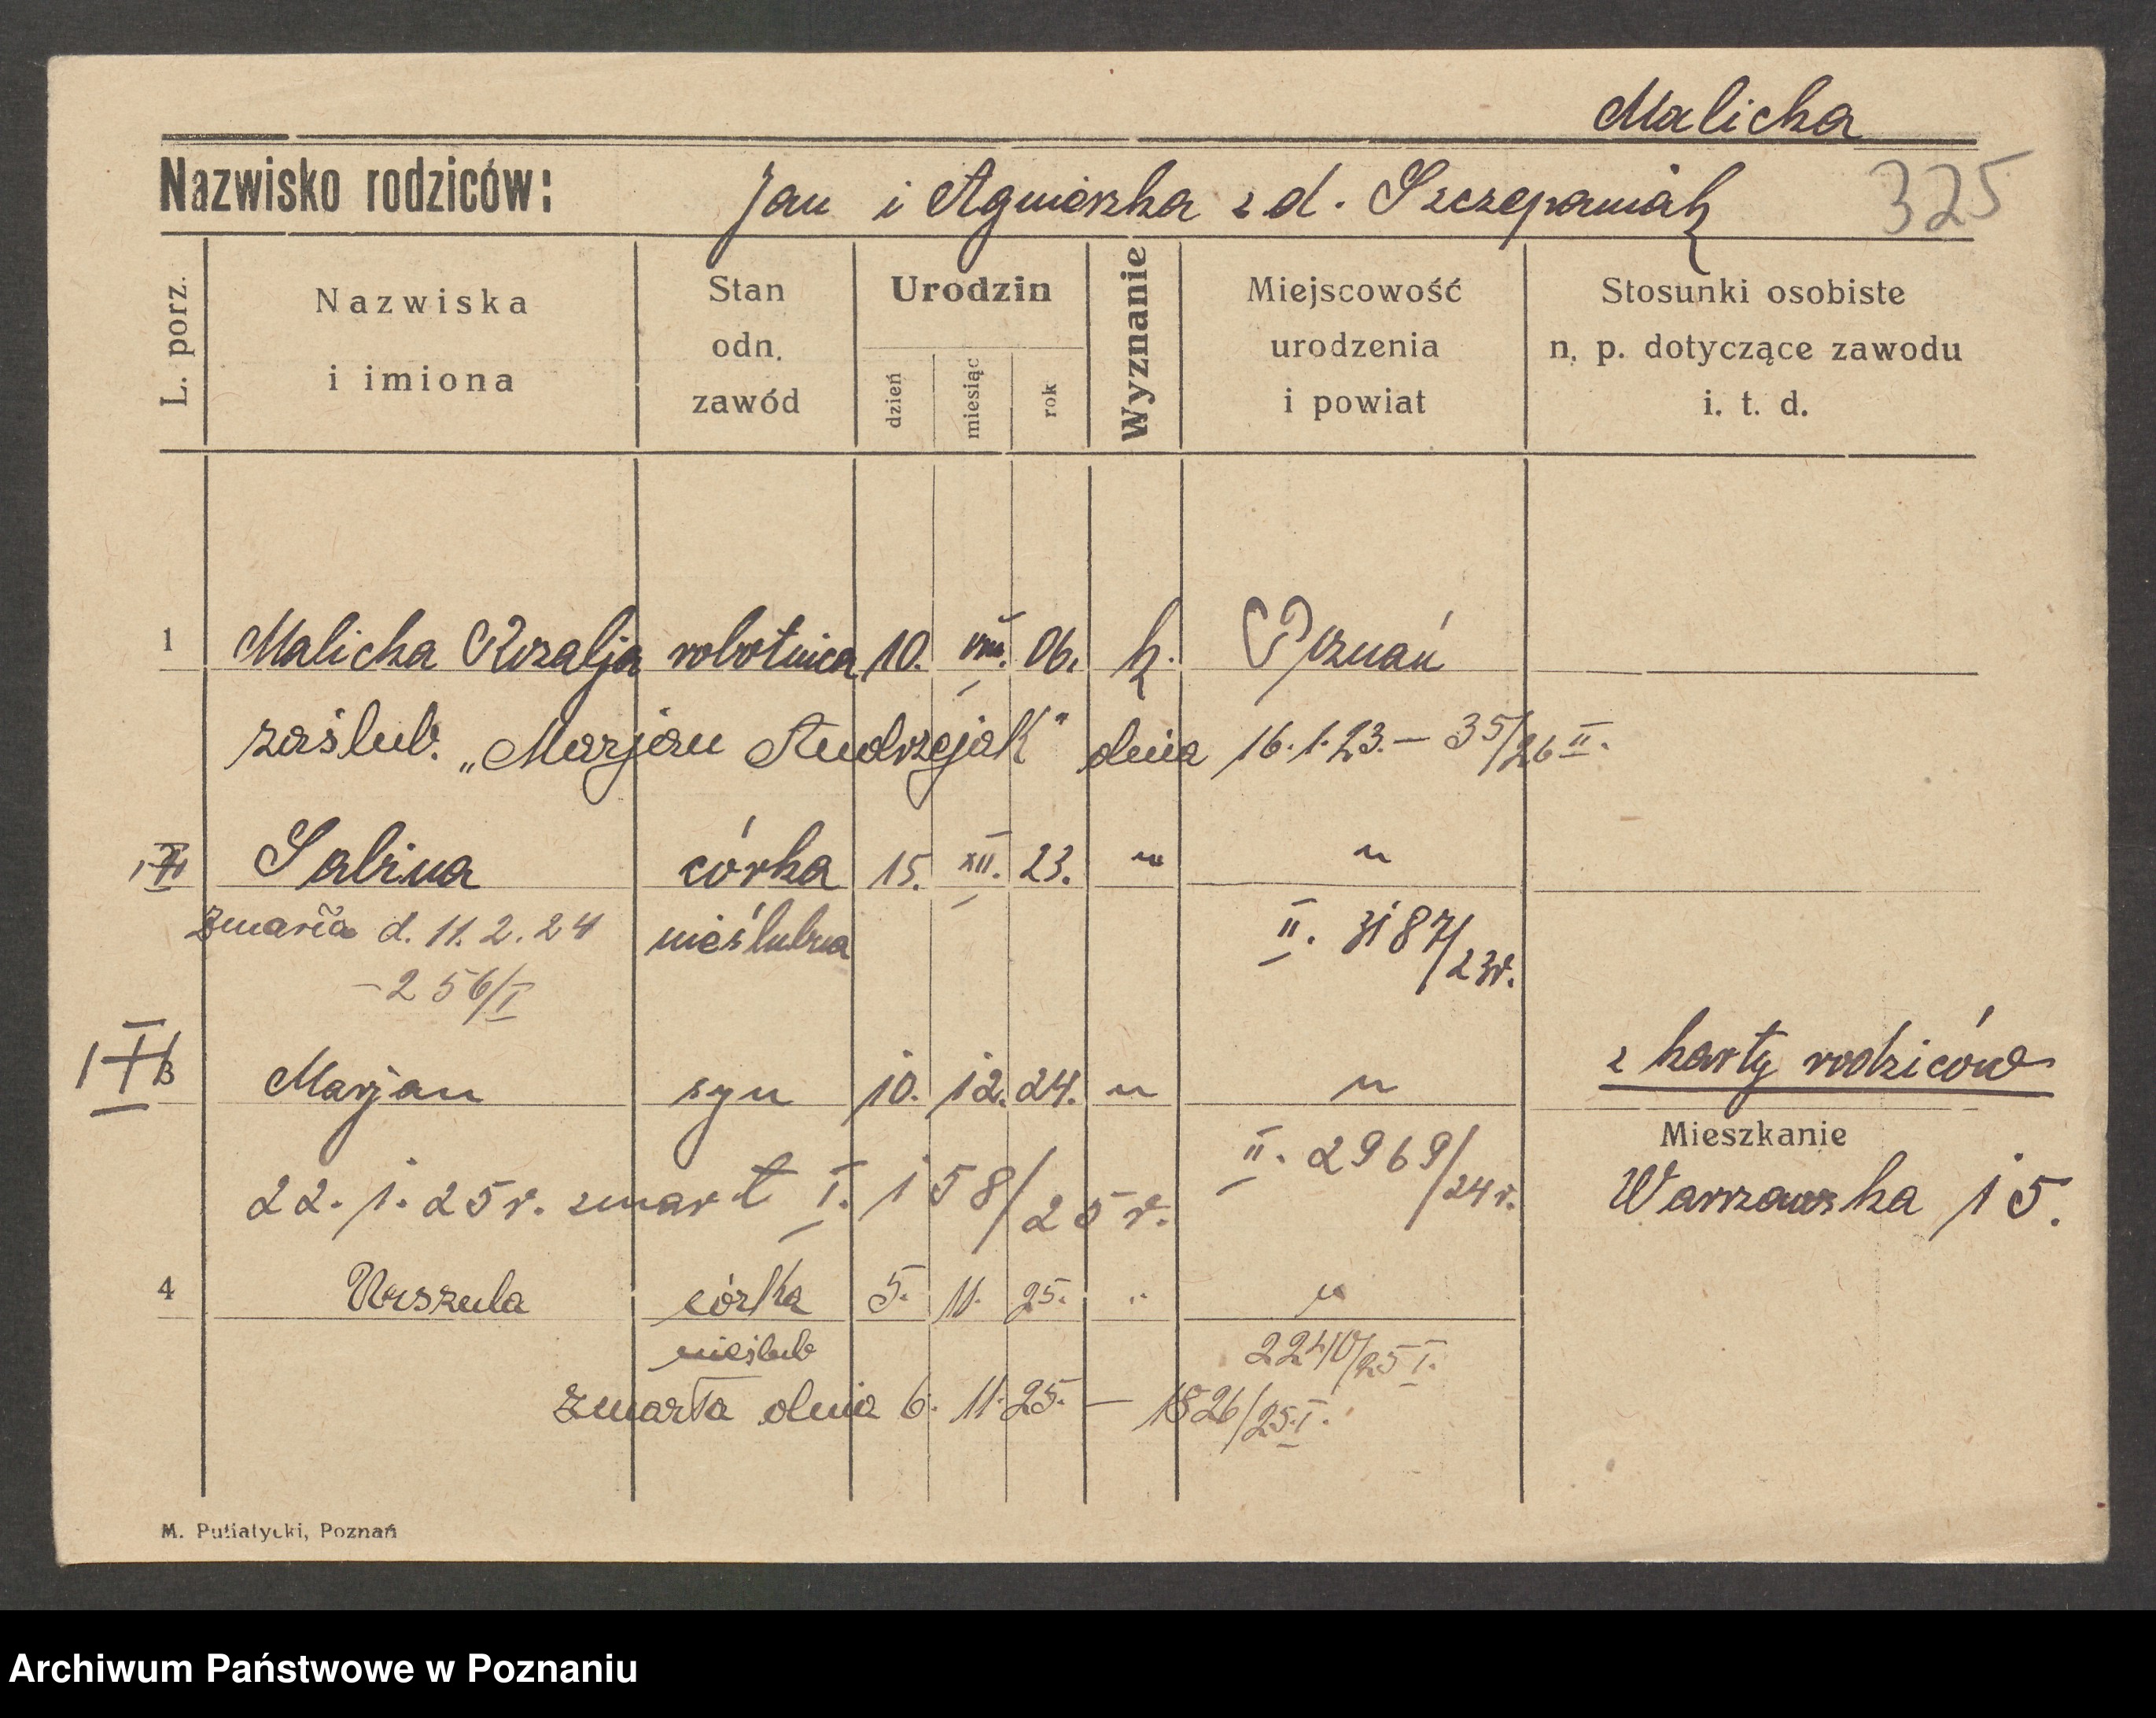 Malicka
Nazwisko rodziców: Jan i Agnieszka z d. Szczepaniak 325
L. porz. Nazwiska i imiona Stan odn. zawód Urodzin dzień miesiąc rok Wyznanie Miejscowość urodzenia i powiat Stosunki osobiste n. p. dotyczące zawodu i. t. d.
1 Malicka Rozalja robotnica 10. VIII. 06. k. Poznań
zaślub. „Marjan Andrzejak" dnia 16.1.23. — 35/26 II.
Sabina córka 15. XII. 23. " "
zmarła d. 11.2.24 nieślubna II. 3187/23r.
– 256/I
z karty rodziców
Marjan syn 10. 12. 24. " "
Mieszkanie
II. 2969/24 r.
22.1.25r. zmarł I. 158/25r.
Warszawska 15.
4 Urszula córka 5. 11. 25. " "
nieślub 2240/25 I.
zmarła dnia 6. 11. 25. — 1826/25.I.
M. Putiatycki, Poznań
Archiwum Państwowe w Poznaniu